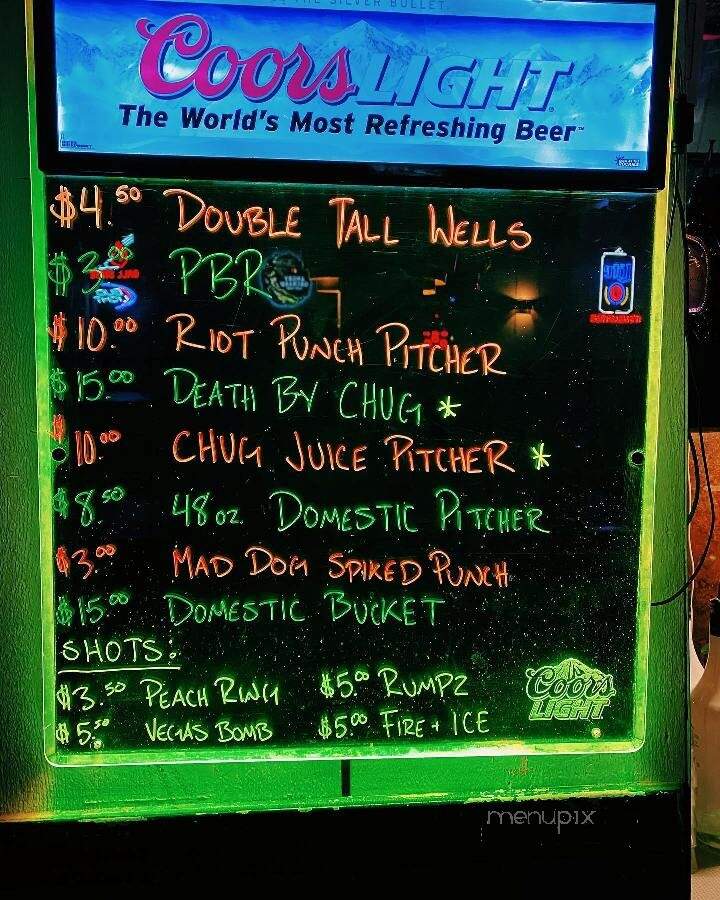 THE SILVER BULLET.
Coors LIGHT
The World's Most Refreshing Beer™
$4.50 DOUBLE TALL WELLS
$3.00 PBR
$10.00 RIOT PUNCH PITCHER
$15.00 DEATH BY CHUG *
$10.00 CHUG JUICE PITCHER *
$8.50 48oz DOMESTIC PITCHER
$3.00 MAD DOG SPIKED PUNCH
$15.00 DOMESTIC BUCKET
SHOTS:
$3.50 PEACH RING $5.00 RUMPZ
$5.50 VEGAS BOMB $5.00 FIRE + ICE
Coors
LIGHT
menupix